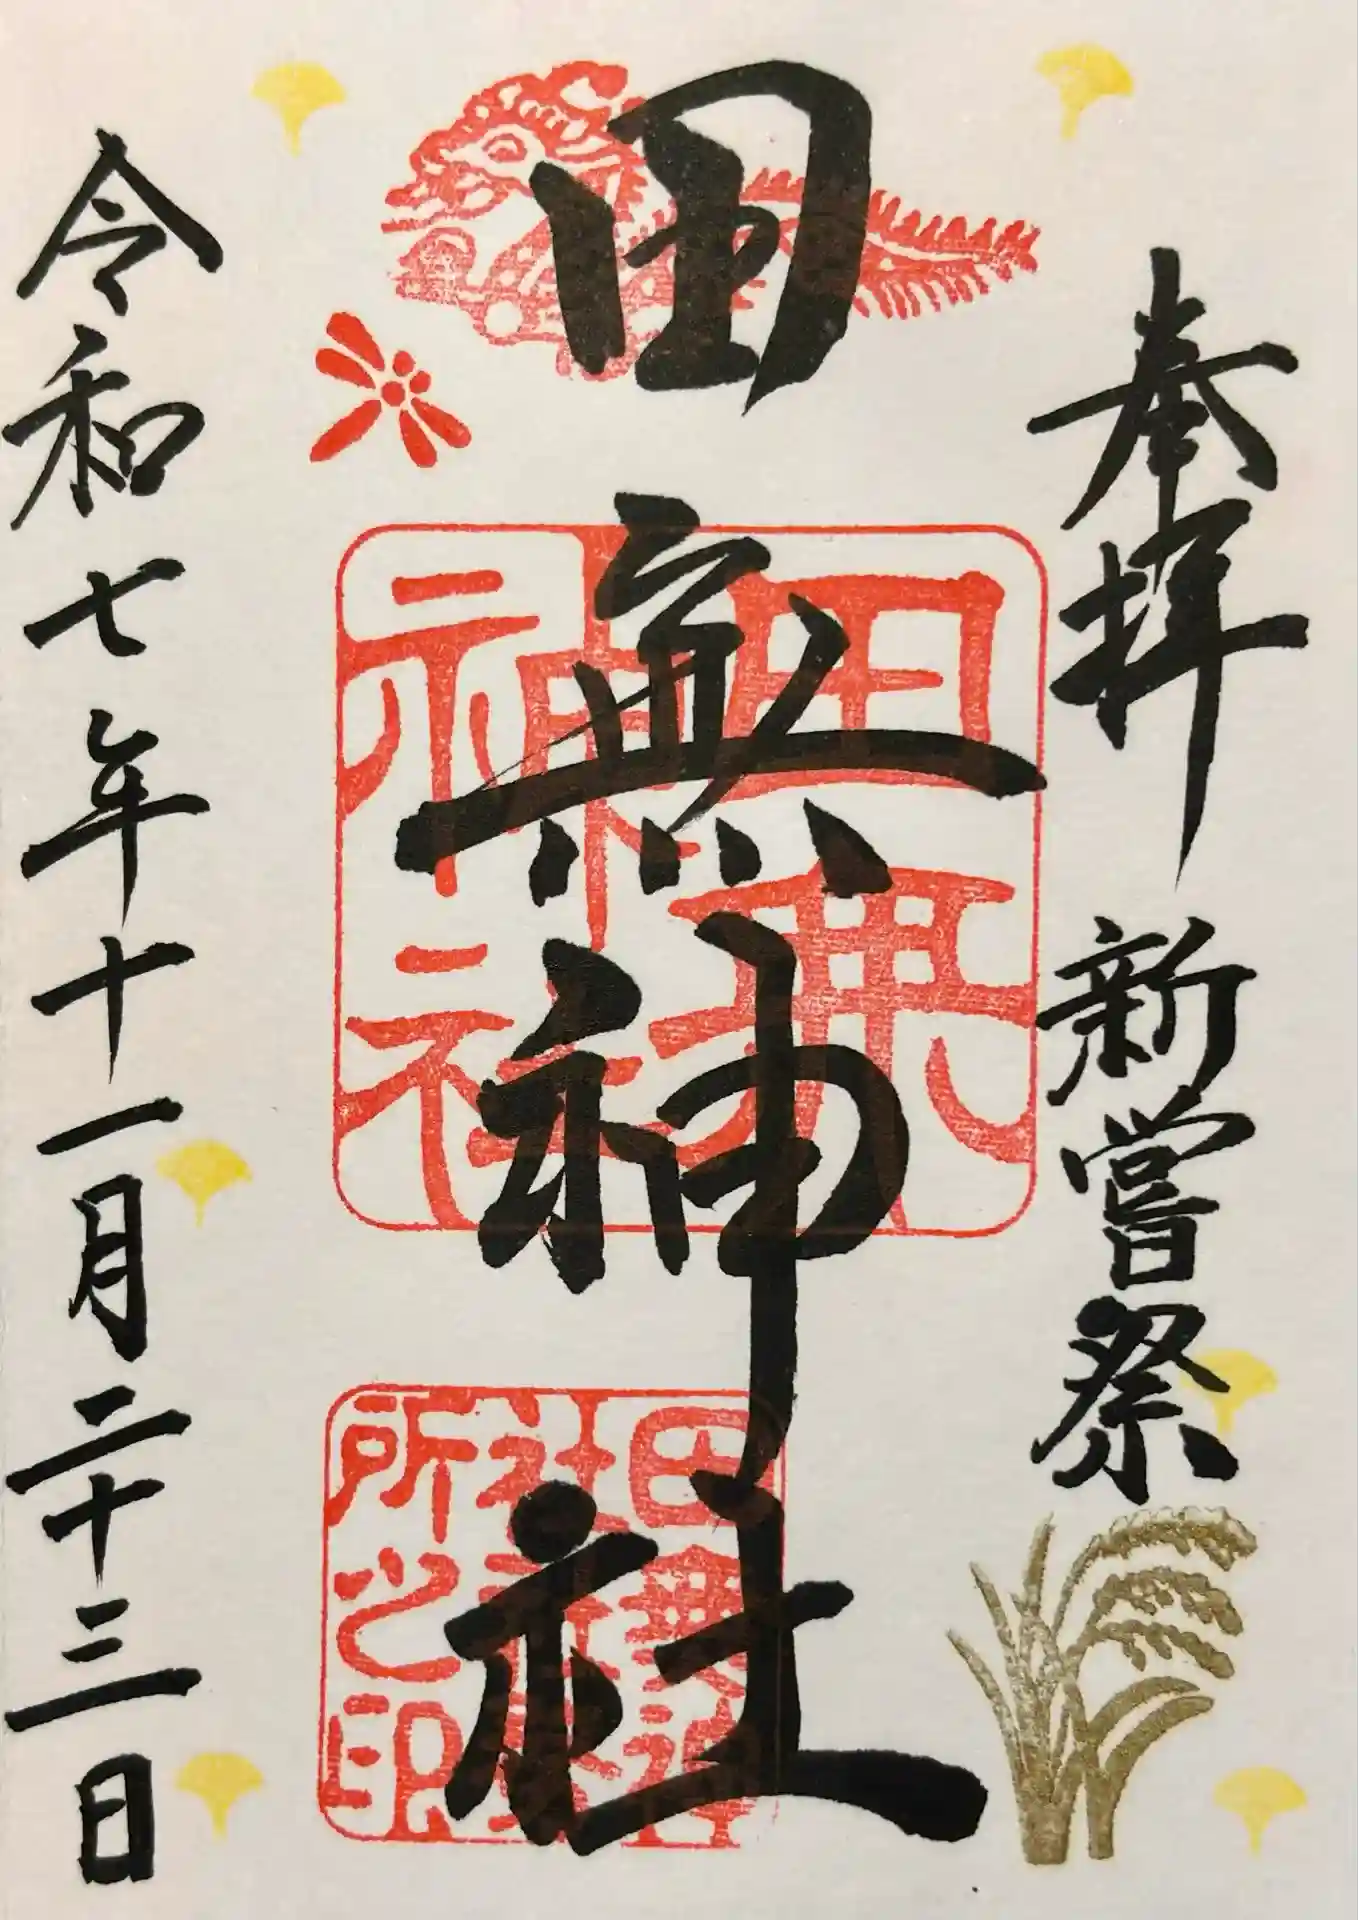 奉拝 新嘗祭
田無神社
田無神社
田無神社
社務所之印
令和七年十一月二十三日